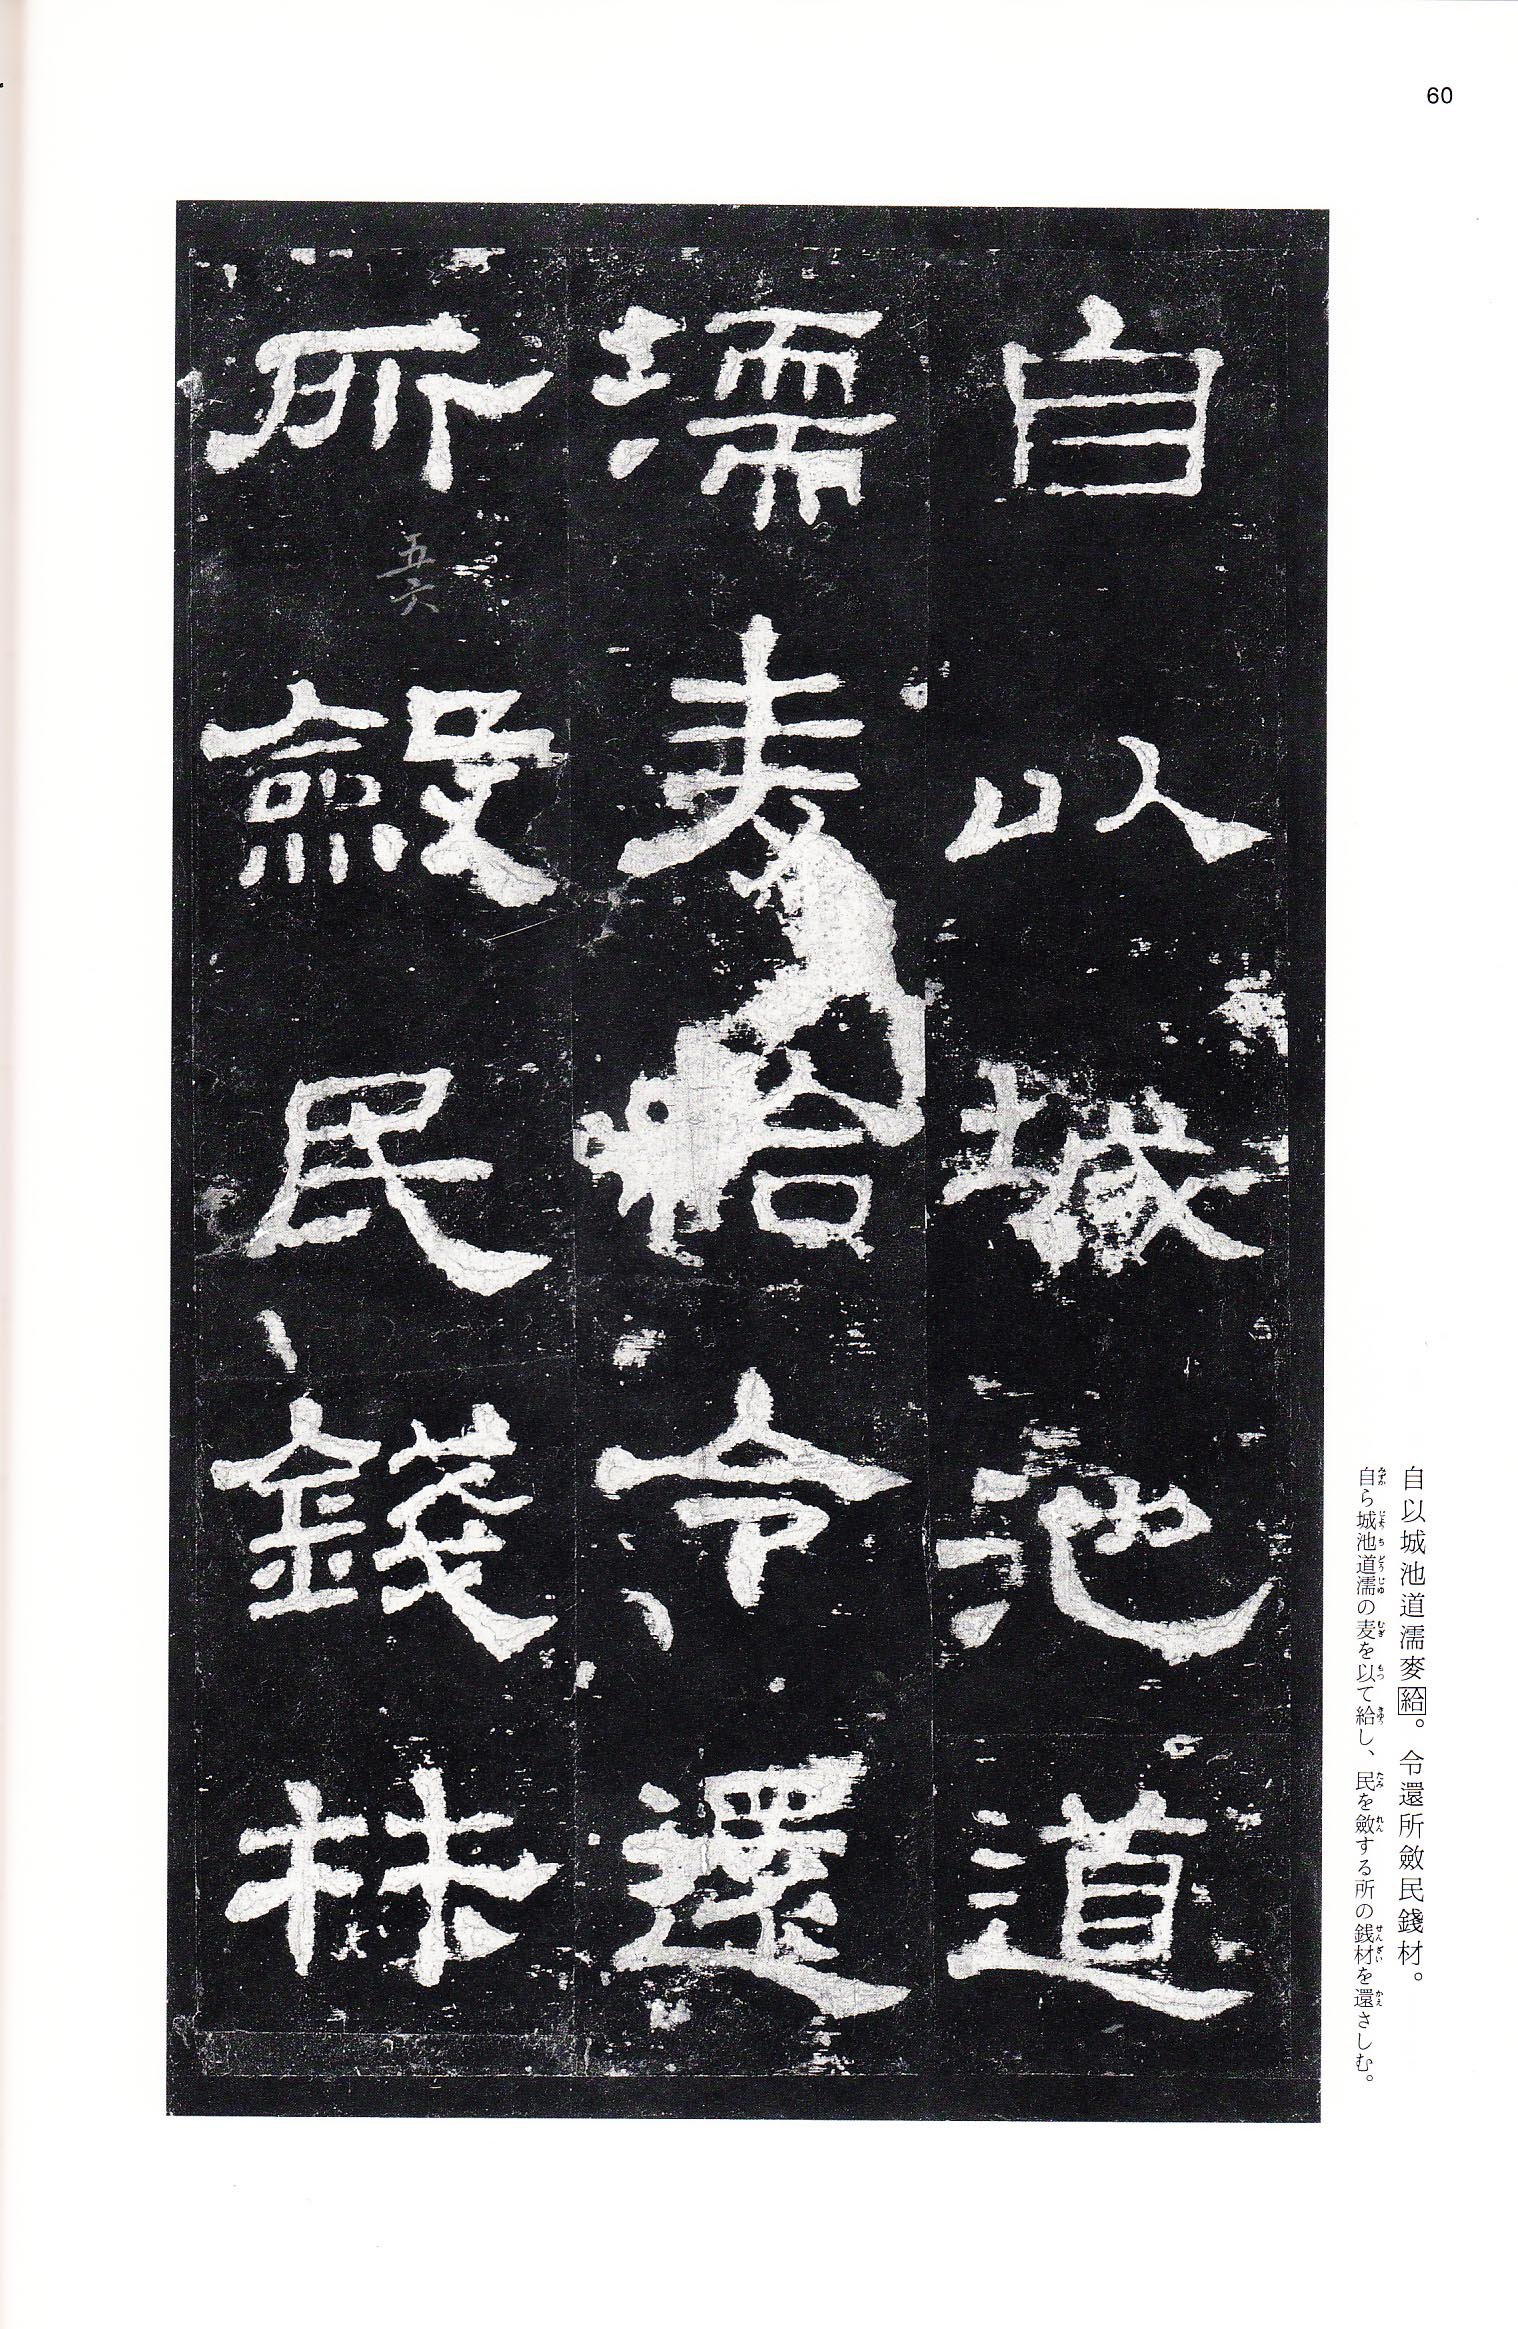 60
自以城池道
濡麥給令還
所斂民錢材
五六
自以城池道濡麥給。令還所斂民錢材。
自ら城池道濡の麦を以て給し、民を斂する所の銭材を還さしむ。